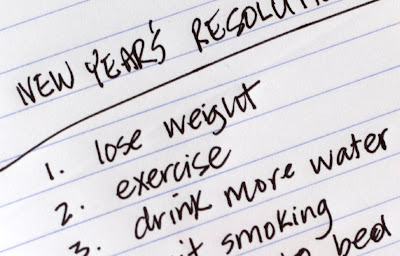 NEW YEAR'S RESOLUTI
1. lose weight
2. exercise
3. drink more water
smoking
bed